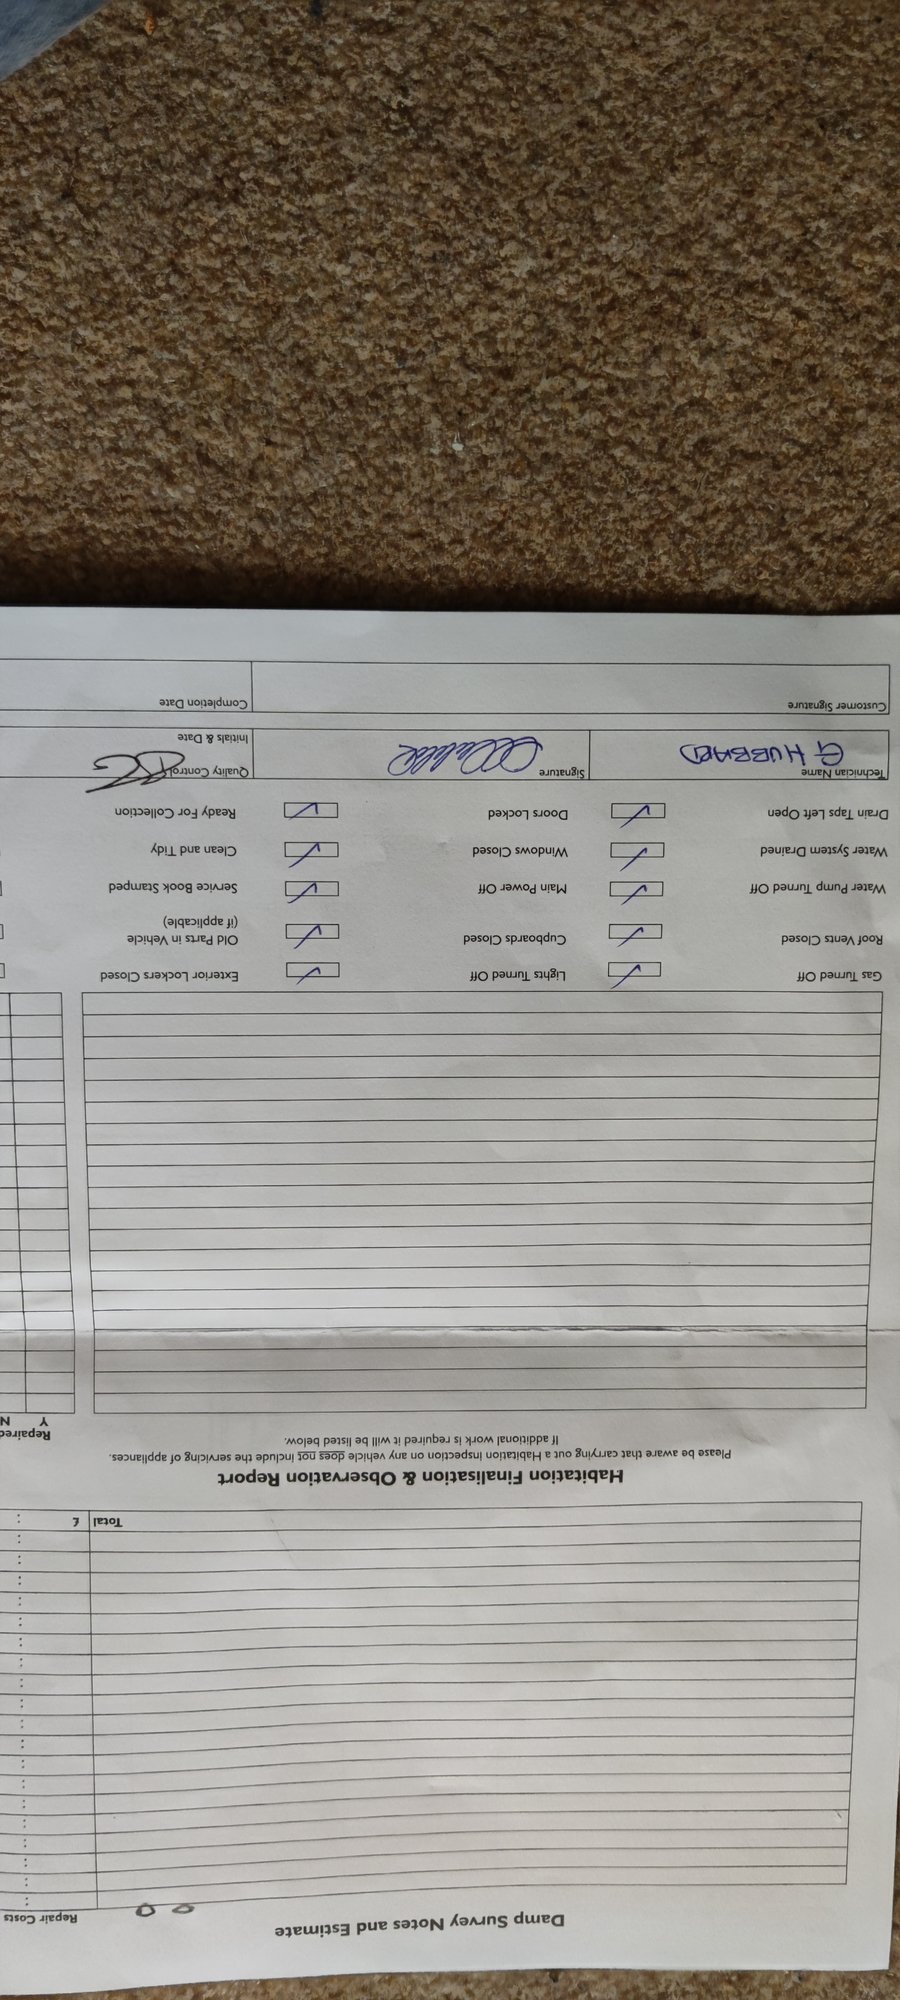 Damp Survey Notes and Estimate
Repair Costs
Total £
Habitation Finalisation & Observation Report
Please be aware that carrying out a Habitation Inspection on any vehicle does not include the servicing of appliances.
If additional work is required it will be listed below.
Repaired
Y N
Gas Turned Off Lights Turned Off Exterior Lockers Closed
Roof Vents Closed Cupboards Closed Old Parts in Vehicle
(if applicable)
Water Pump Turned Off Main Power Off Service Book Stamped
Water System Drained Windows Closed Clean and Tidy
Drain Taps Left Open Doors Locked Ready For Collection
Technician Name Signature Quality Control
G HUBBARD
Initials & Date
Customer Signature Completion Date